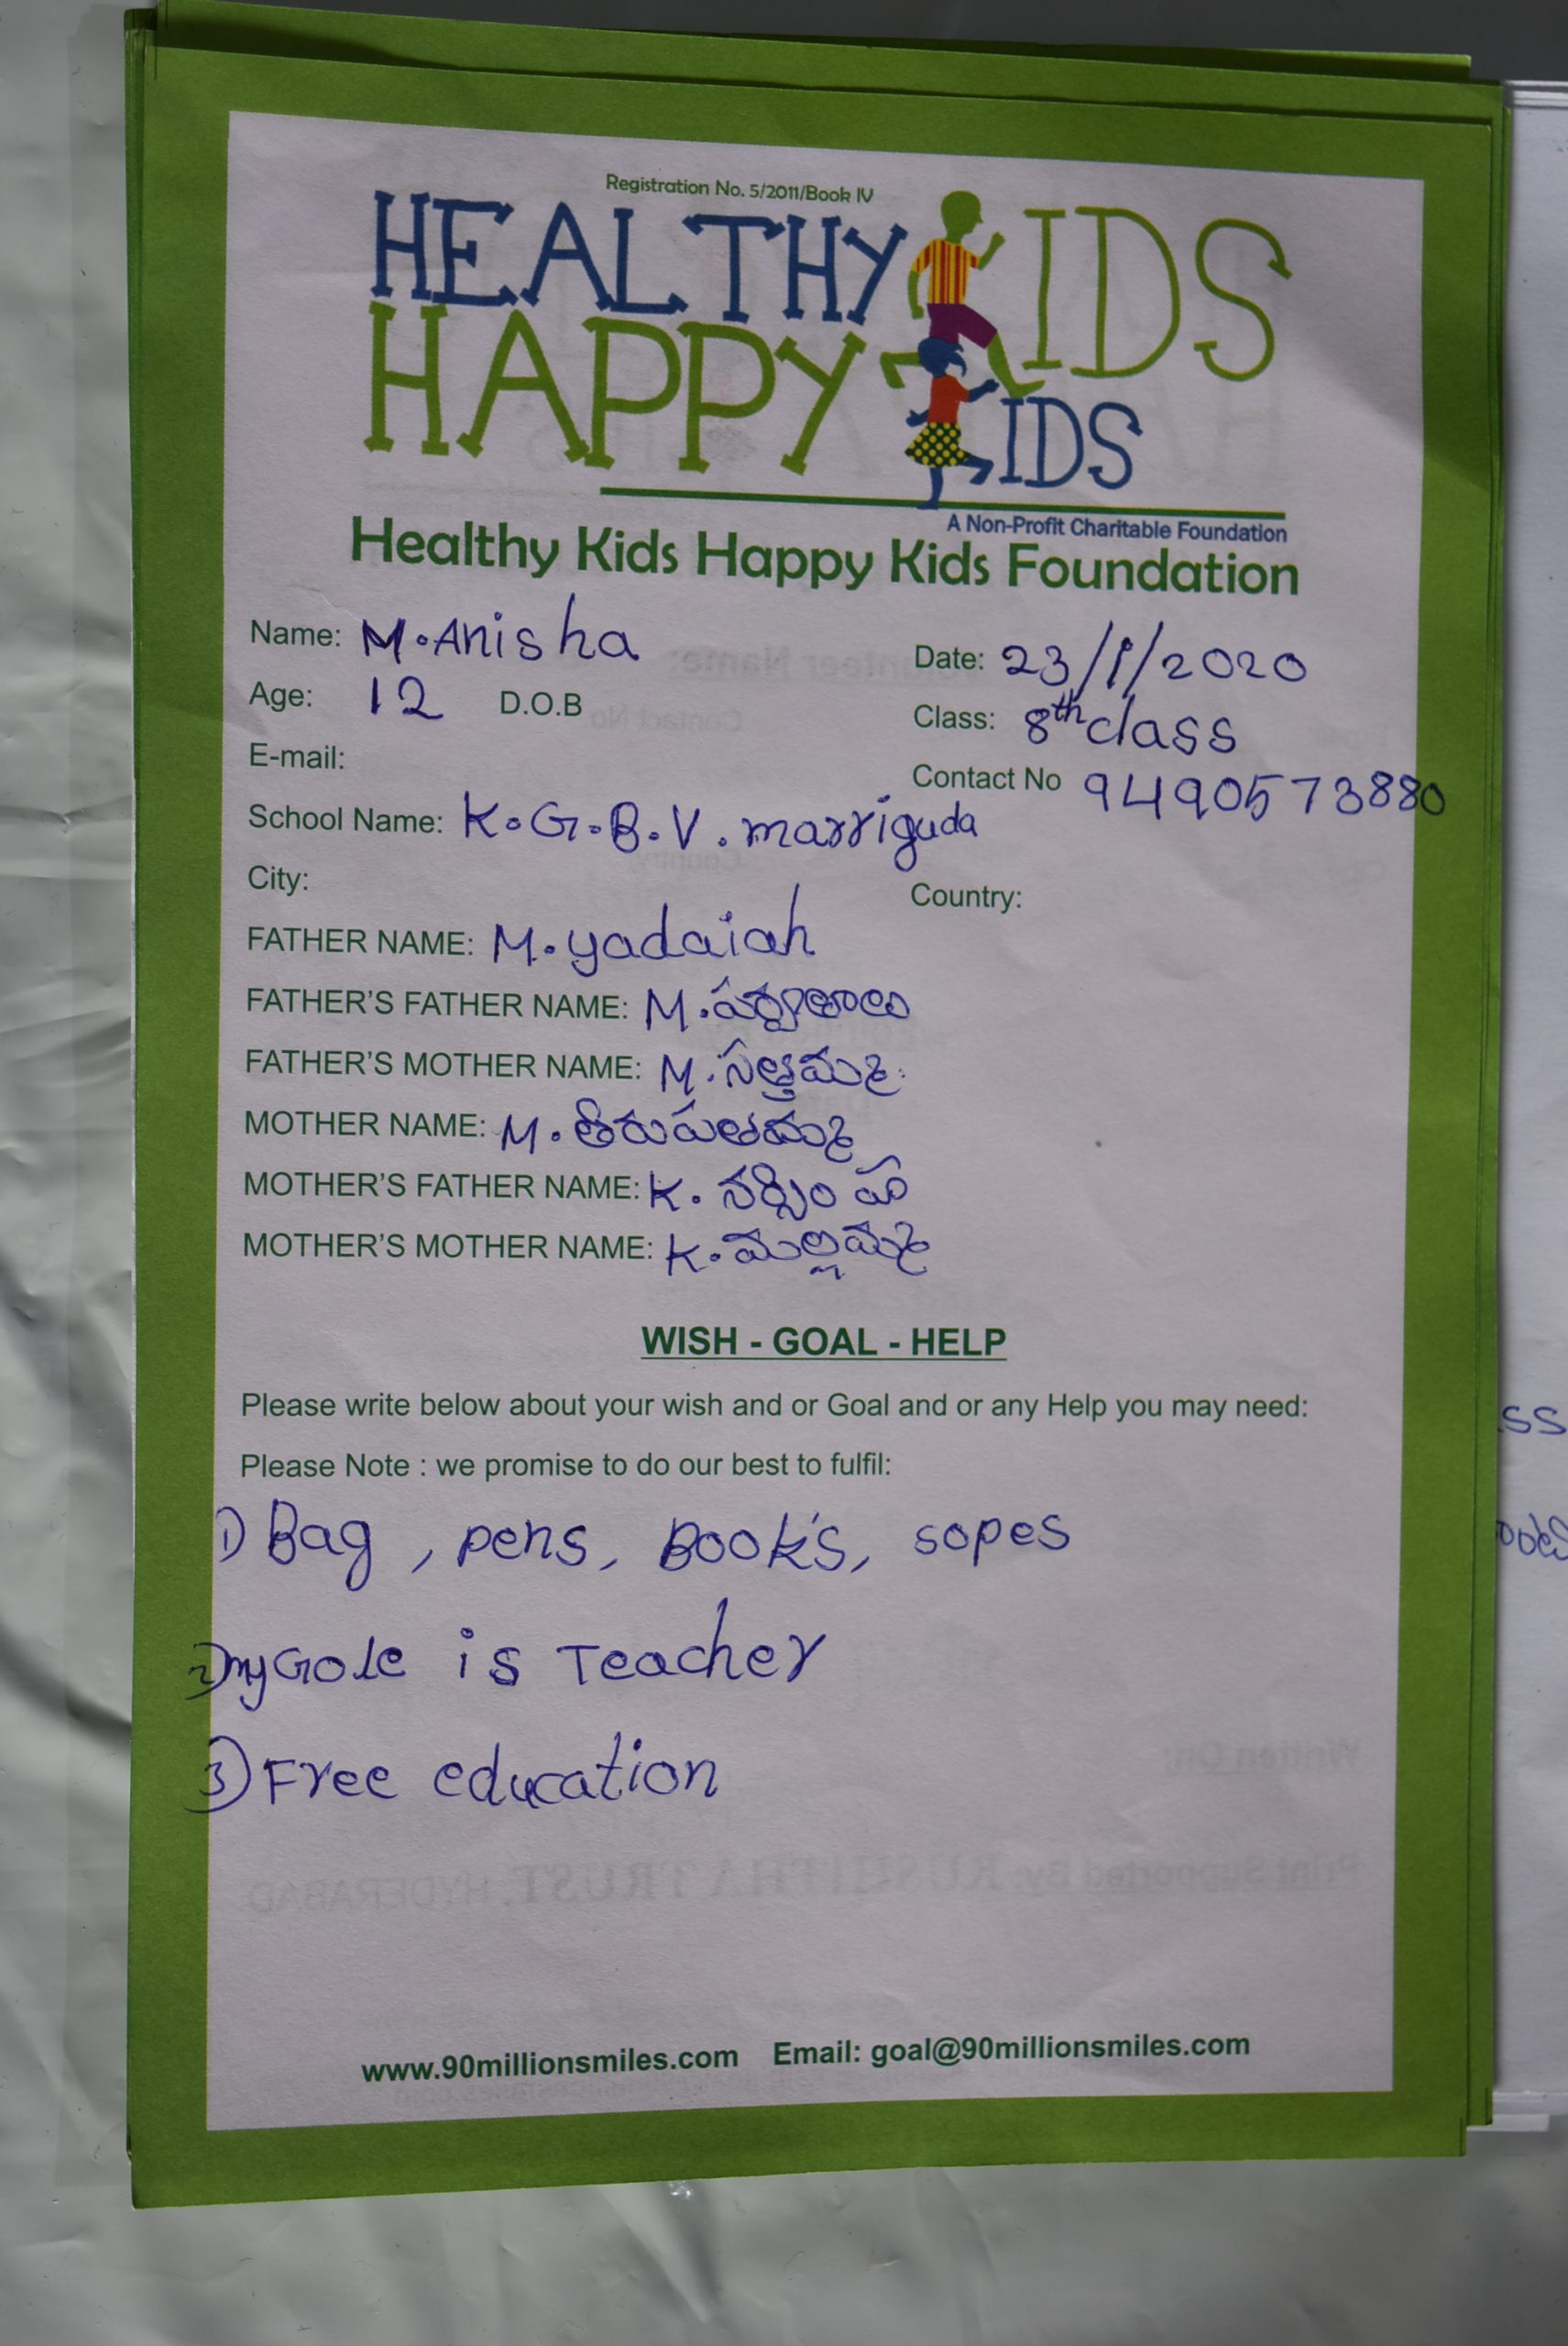 Registration No. 5/2011/Book IV
HEALTHY KIDS
HAPPY KIDS
A Non-Profit Charitable Foundation
Healthy Kids Happy Kids Foundation
Name: M.Anisha Date: 23/1/2020
Age: 12 D.O.B Class: 8th class
E-mail: Contact No 9490573880
School Name: K.G.B.V. marriguda
City: Country:
FATHER NAME: M.yadaiah
FATHER'S FATHER NAME: M.పర్వతాలు
FATHER'S MOTHER NAME: M.సత్తమ్మ
MOTHER NAME: M.తిరుపతమ్మ
MOTHER'S FATHER NAME: K. నర్సింహ
MOTHER'S MOTHER NAME: K.మల్లమ్మ
WISH - GOAL - HELP
Please write below about your wish and or Goal and or any Help you may need:
Please Note : we promise to do our best to fulfil:
1) Bag, pens, Book's, sopes
2) my Gole is Teacher
3) Free education
www.90millionsmiles.com Email: goal@90millionsmiles.com